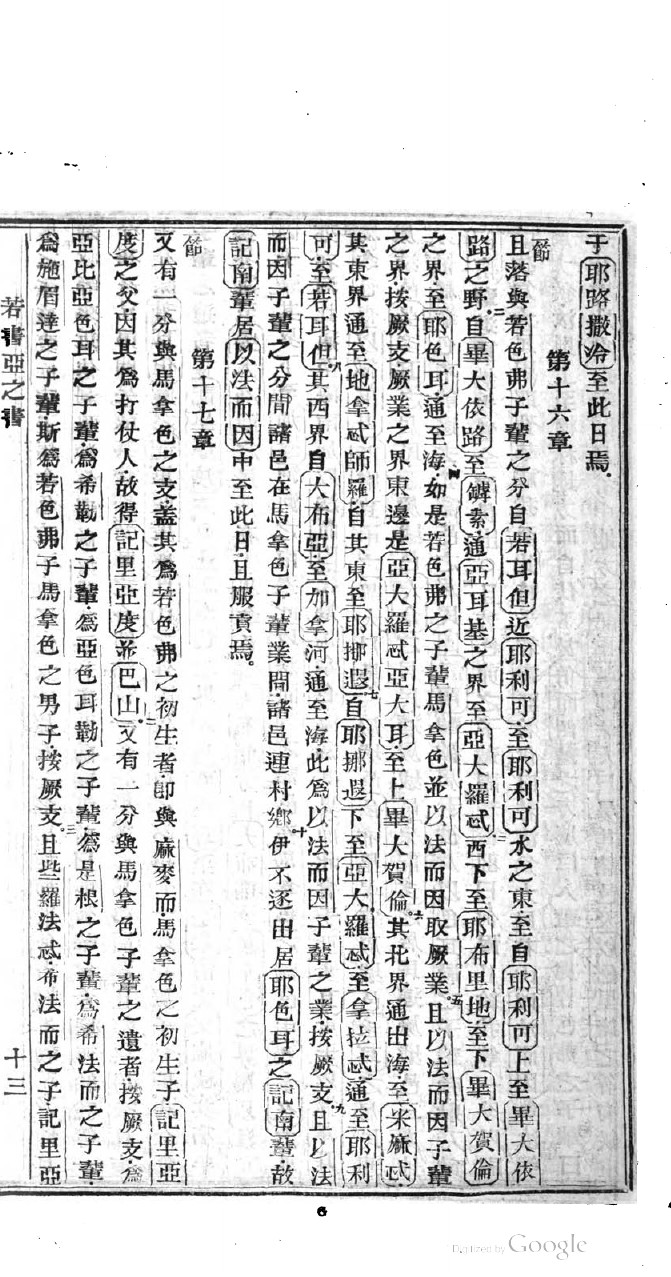 于耶路撒冷至此日焉.
第十六章
節 且落與若色弗子輩之分自若耳但近耶利可.至耶利可水之東.至自耶利可上至畢大依
路之野.二自畢大依路至𨐅素.通亞耳基之界至亞大羅忒.三西下至耶布里地.至下畢大賀倫
之界.至耶色耳.通至海.四如是若色弗之子輩馬拿色並以法而因取厥業.五且以法而因子輩
之界按厥支.厥業之界東邊是亞大羅忒亞大耳.至上畢大賀倫.六其北界通出海.至米麻忒
其東界通至地拿忒師羅.自其東至耶挪遐.七自耶挪遐下至亞大羅忒.至拿拉忒通至耶利
可.至若耳但.八其西界自大布亞.至加拿河.通至海.此為以法而因子輩之業.按厥支.九且以法
而因子輩之分間諸邑在馬拿色子輩業間.諸邑連村鄉.十伊不逐出居耶色耳之記南輩.故
記南輩居以法而因中至此日.且服貢焉。
第十七章
節 又有一分與馬拿色之支.蓋其為若色弗之初生者.即與麻麥而.馬拿色之初生子.記里亞
度之父.因其為打仗人.故得記里亞度並巴山.二又有一分與馬拿色子輩之遺者.按厥支.為
亞比亞色耳之子輩.為希勒之子輩.為亞色耳勒之子輩.為是根之子輩.為希法而之子輩.
為施眉達之子輩.斯為若色弗子馬拿色之男子.按厥支.三且些羅法忒.希法而之子.記里亞
若書亞之書
十三
6
Digitized by Google